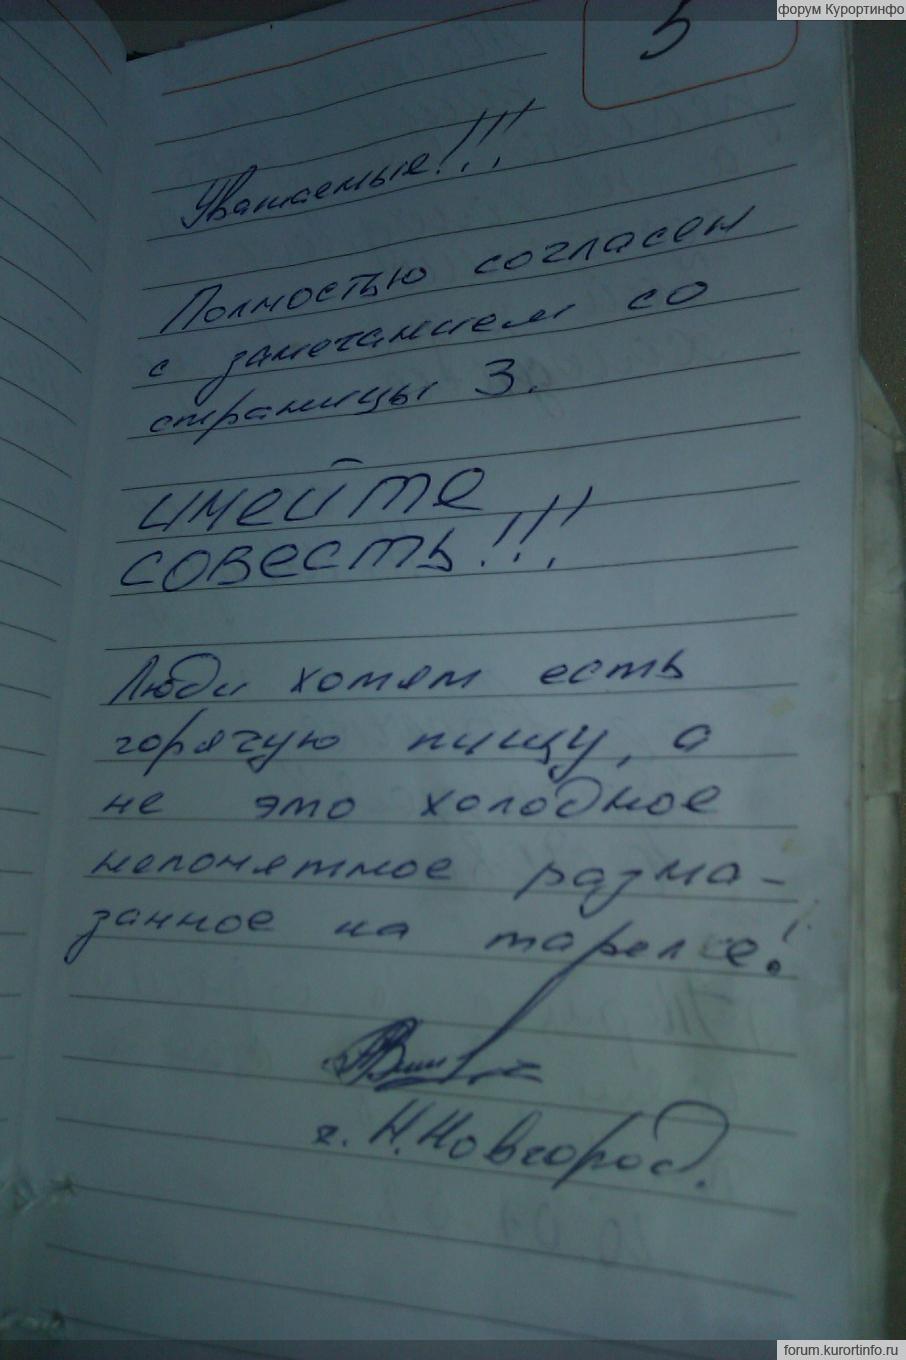 форум Курортинфо
5
Уважаемые!!!
Полностью согласен
с замечанием со
страницы 3.
имейте
совесть!!!
Люди хотят есть
горячую пищу, а
не это холодное
непонятное разма-
занное на тарелке!
г. Н.Новгород.
forum.kurortinfo.ru